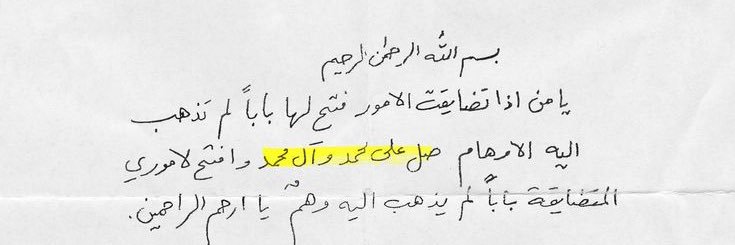 بسم الله الرحمن الرحيم
يا من اذا تضايقت الامور فتح لها باباً لم تذهب
اليه الاوهام صل على محمد وآل محمد وافتح لاموري
المتضايقة باباً لم يذهب اليه وهمٌ يا ارحم الراحمين.